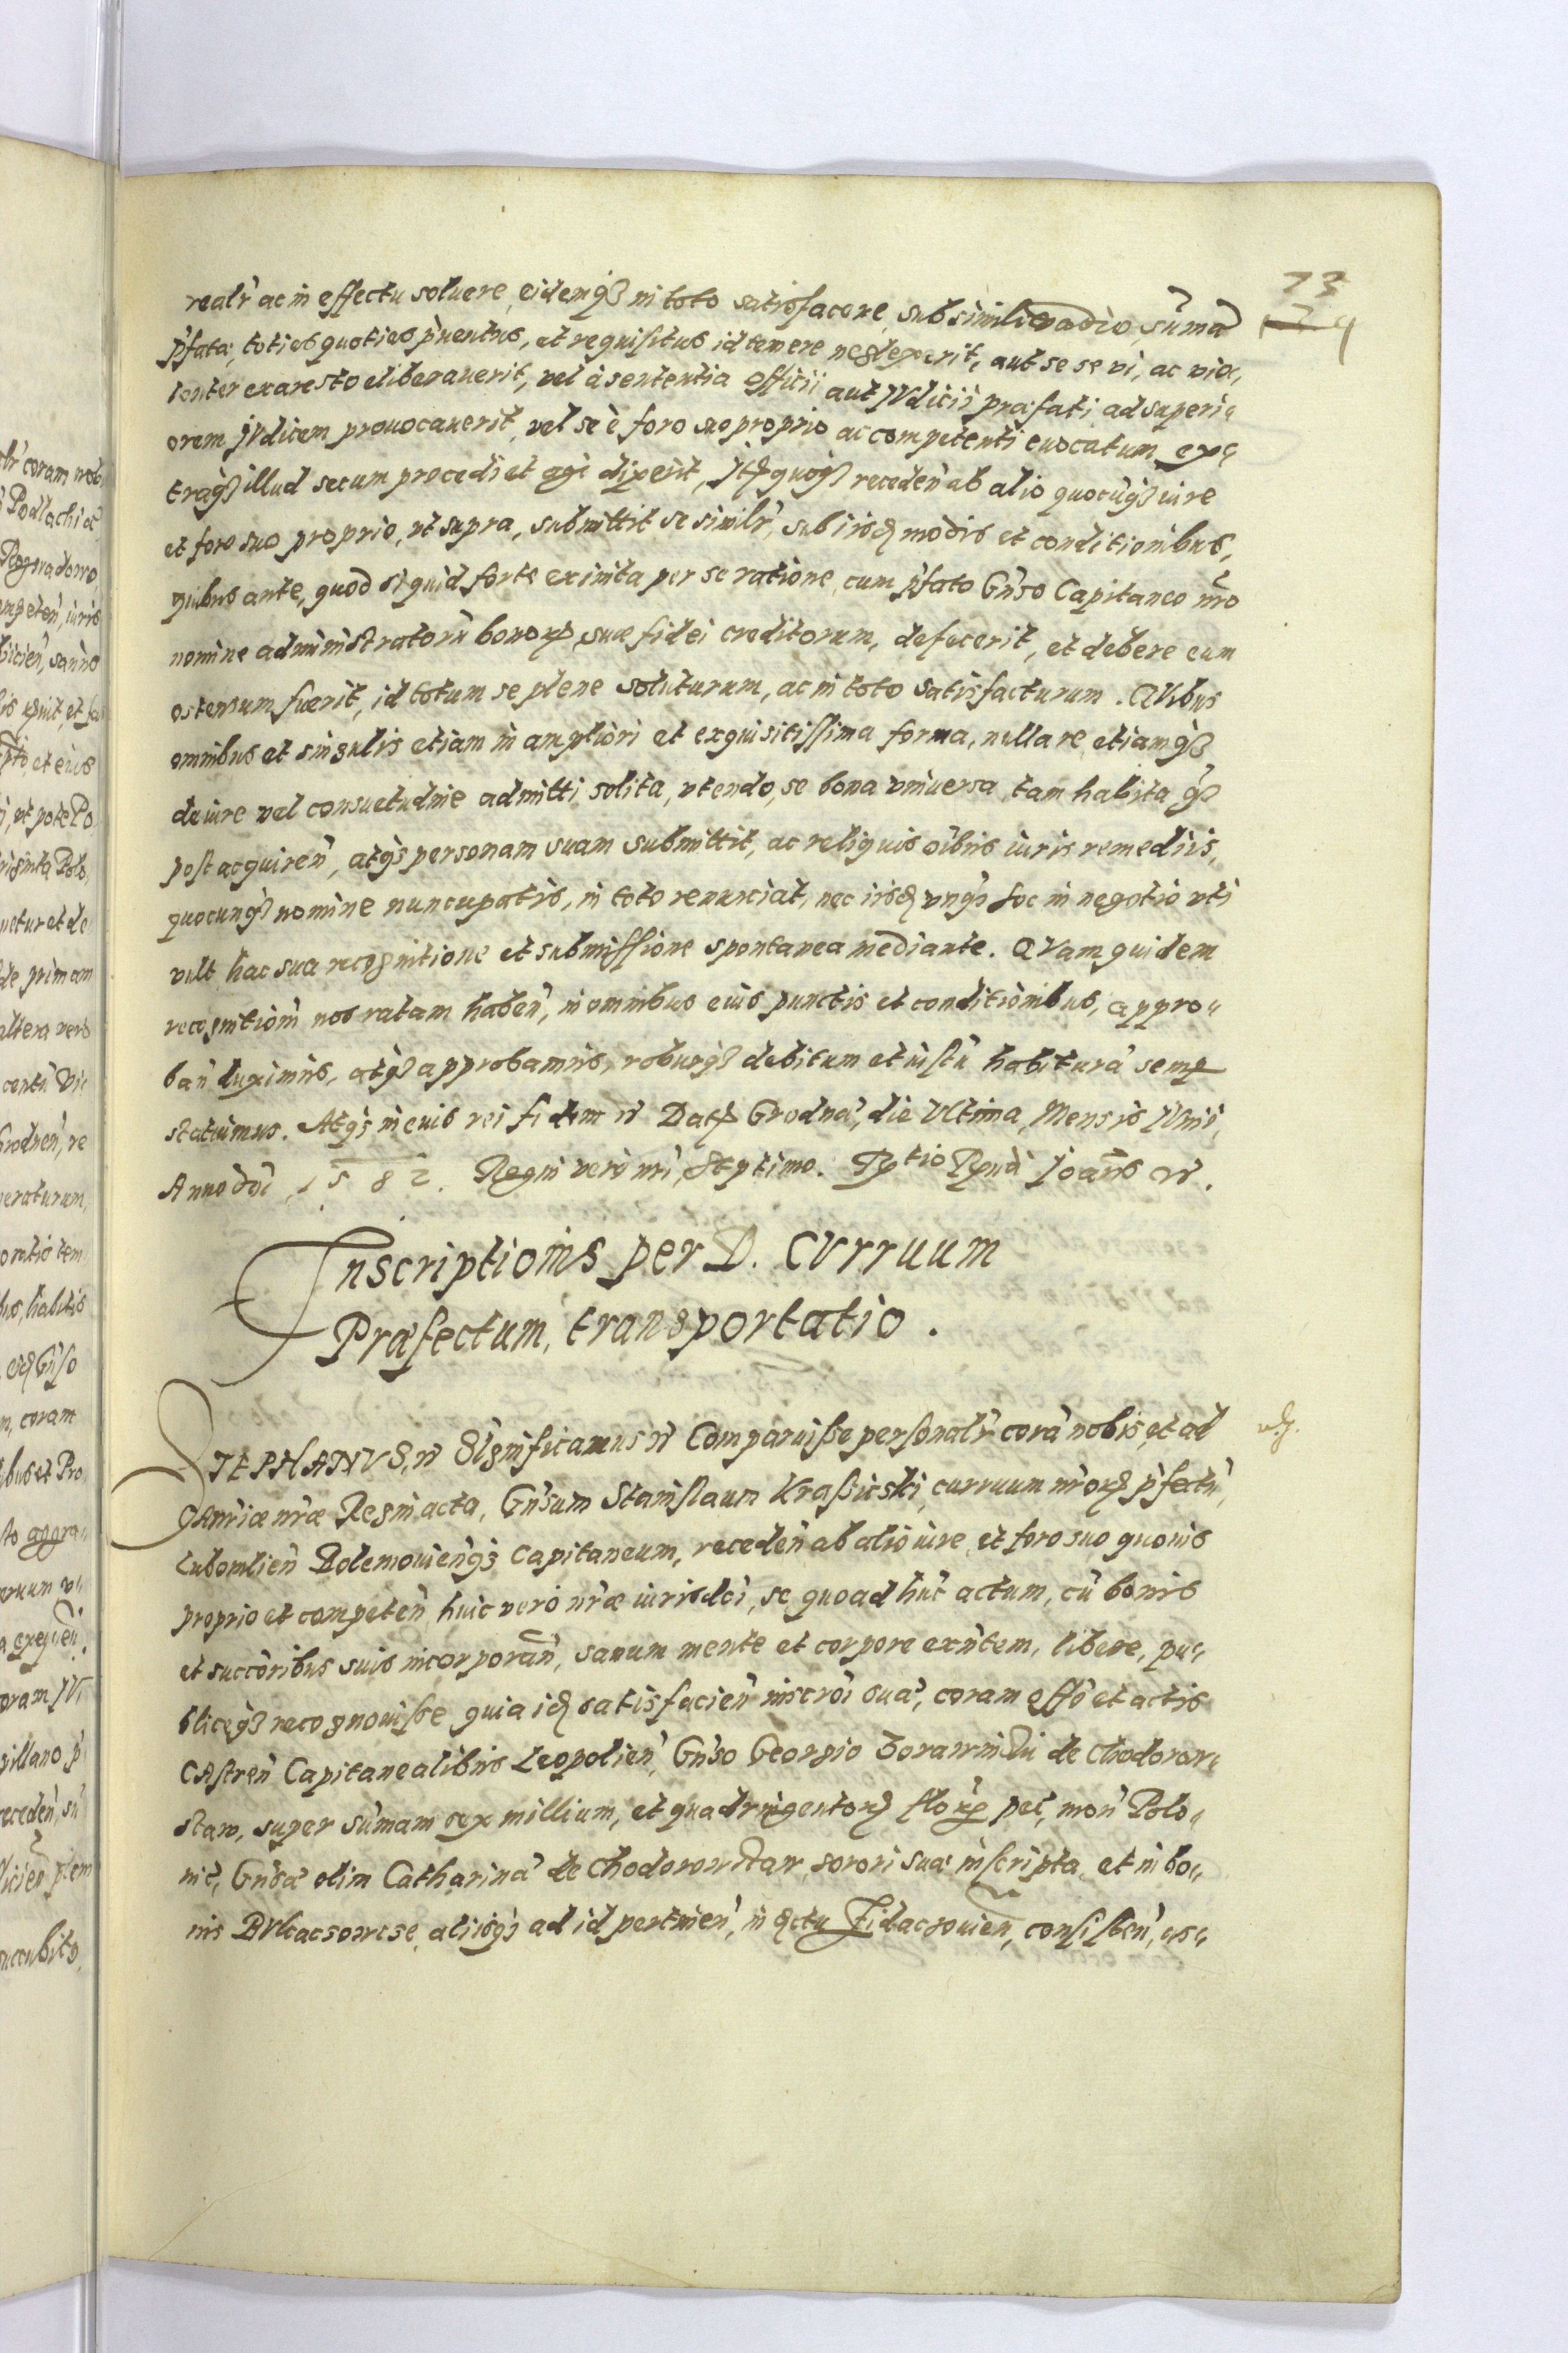 73
realr̃ ac in effectu soluere, eidemq3 in toto satisfacere, sub simili vadio, sũma
p̃fata, toties quoties p̃uentus, et requisitus id temere neglexerit, aut se se vi, ac vio„
lenter ex aresto eliberauerit, vel à sententia officii aut JVdicii præfati ad superi„
orem jVdicem prouocauerit, vel se è foro suo proprio ac competenti euocatum, ex„
traq3 illud secum procedi et agi dixerit, quoq3 receden̄ ab alio quocũq3 iure
et foro suo proprio, vt supra, submittit se similr̃, sub iisd modis et conditionibus,
quibus ante, quod si quid forte ex inita per se ratione, cum p̃fato Gn̄so Capitaneo nr̃o
nomine administratorũ bonorꝝ, suæ fidei creditorum, defecerit, et debere eum
ostensum fuerit, id totum se plene soluturum, ac in toto satisfacturum. QVibus
omnibus et singulis etiam in ampliori et exquisitissima forma, nulla re etiamq3
de iure vel consuetudine admitti solita, vtendo, se bona vniuersa, tam habita q3
post acquiren̄, atq3 personam suam submittit, ac reliquis oĩbus iuris remediis,
quocunq3 nomine nuncupatis, in toto renunciat, nec iisd vnq3 hoc in negotio vti
vult, hac sua recognitione et submissione spontanea mediante. QVam quidem
recognitionẽ nos ratam haben̄, in omnibus eius punctis et conditionibus, appro„
ban̄ duximus, atq3 approbamus, roburq3 debitum et iustũ habiturã semꝑ
statuimus. Atq3 in cuius rei fidem Datꝝ Grodnæ, die Vltima, Mensis JVnii,
Anno dñi 1582. Regni vero nr̃i, Septimo. Joañis
Inscriptionis per D. CVrruum
Præfectum, transportatio.
STEPHANVS, SIgnificamus Comparuisse personalr̃ corã nobis, et ad
CAnr̃iæ nr̃æ Regni acta, Gn̄sum Stanislaum Krasicski, curruum nr̃orꝝ p̃fectũ,
Lubomlien̄ Dolemouien̄q3 Capitaneum, receden̄ ab alio iure, et foro suo quouis
proprio et competen̄, huic vero nr̃æ iurisdcĩ, se quoad hũc actum, cũ bonis
et succõribus suis incorporan̄, sanum mente et corpore exñtem, libere, pu„
bliceq3 recognouisse quia id satisfacien̄ inscrõi suæ, coram offõ et actis
CAstren̄ Capitanealibus Leopolien̄, Gn̄so Georgio de Chodorow„
staw, super sũmam sex millium, et quadringentorꝝ florꝝ pec̃, mon̄ Polo„
nic̃, Gn̄sæ olim Catharinæ de Chodorowstaw, sorori suæ inscripta, et in bo„
nis BVkaczowcse, aliisq3 ad id pertinen̄, in dc̃tu Zidaczouien̄, consisten̄, as„